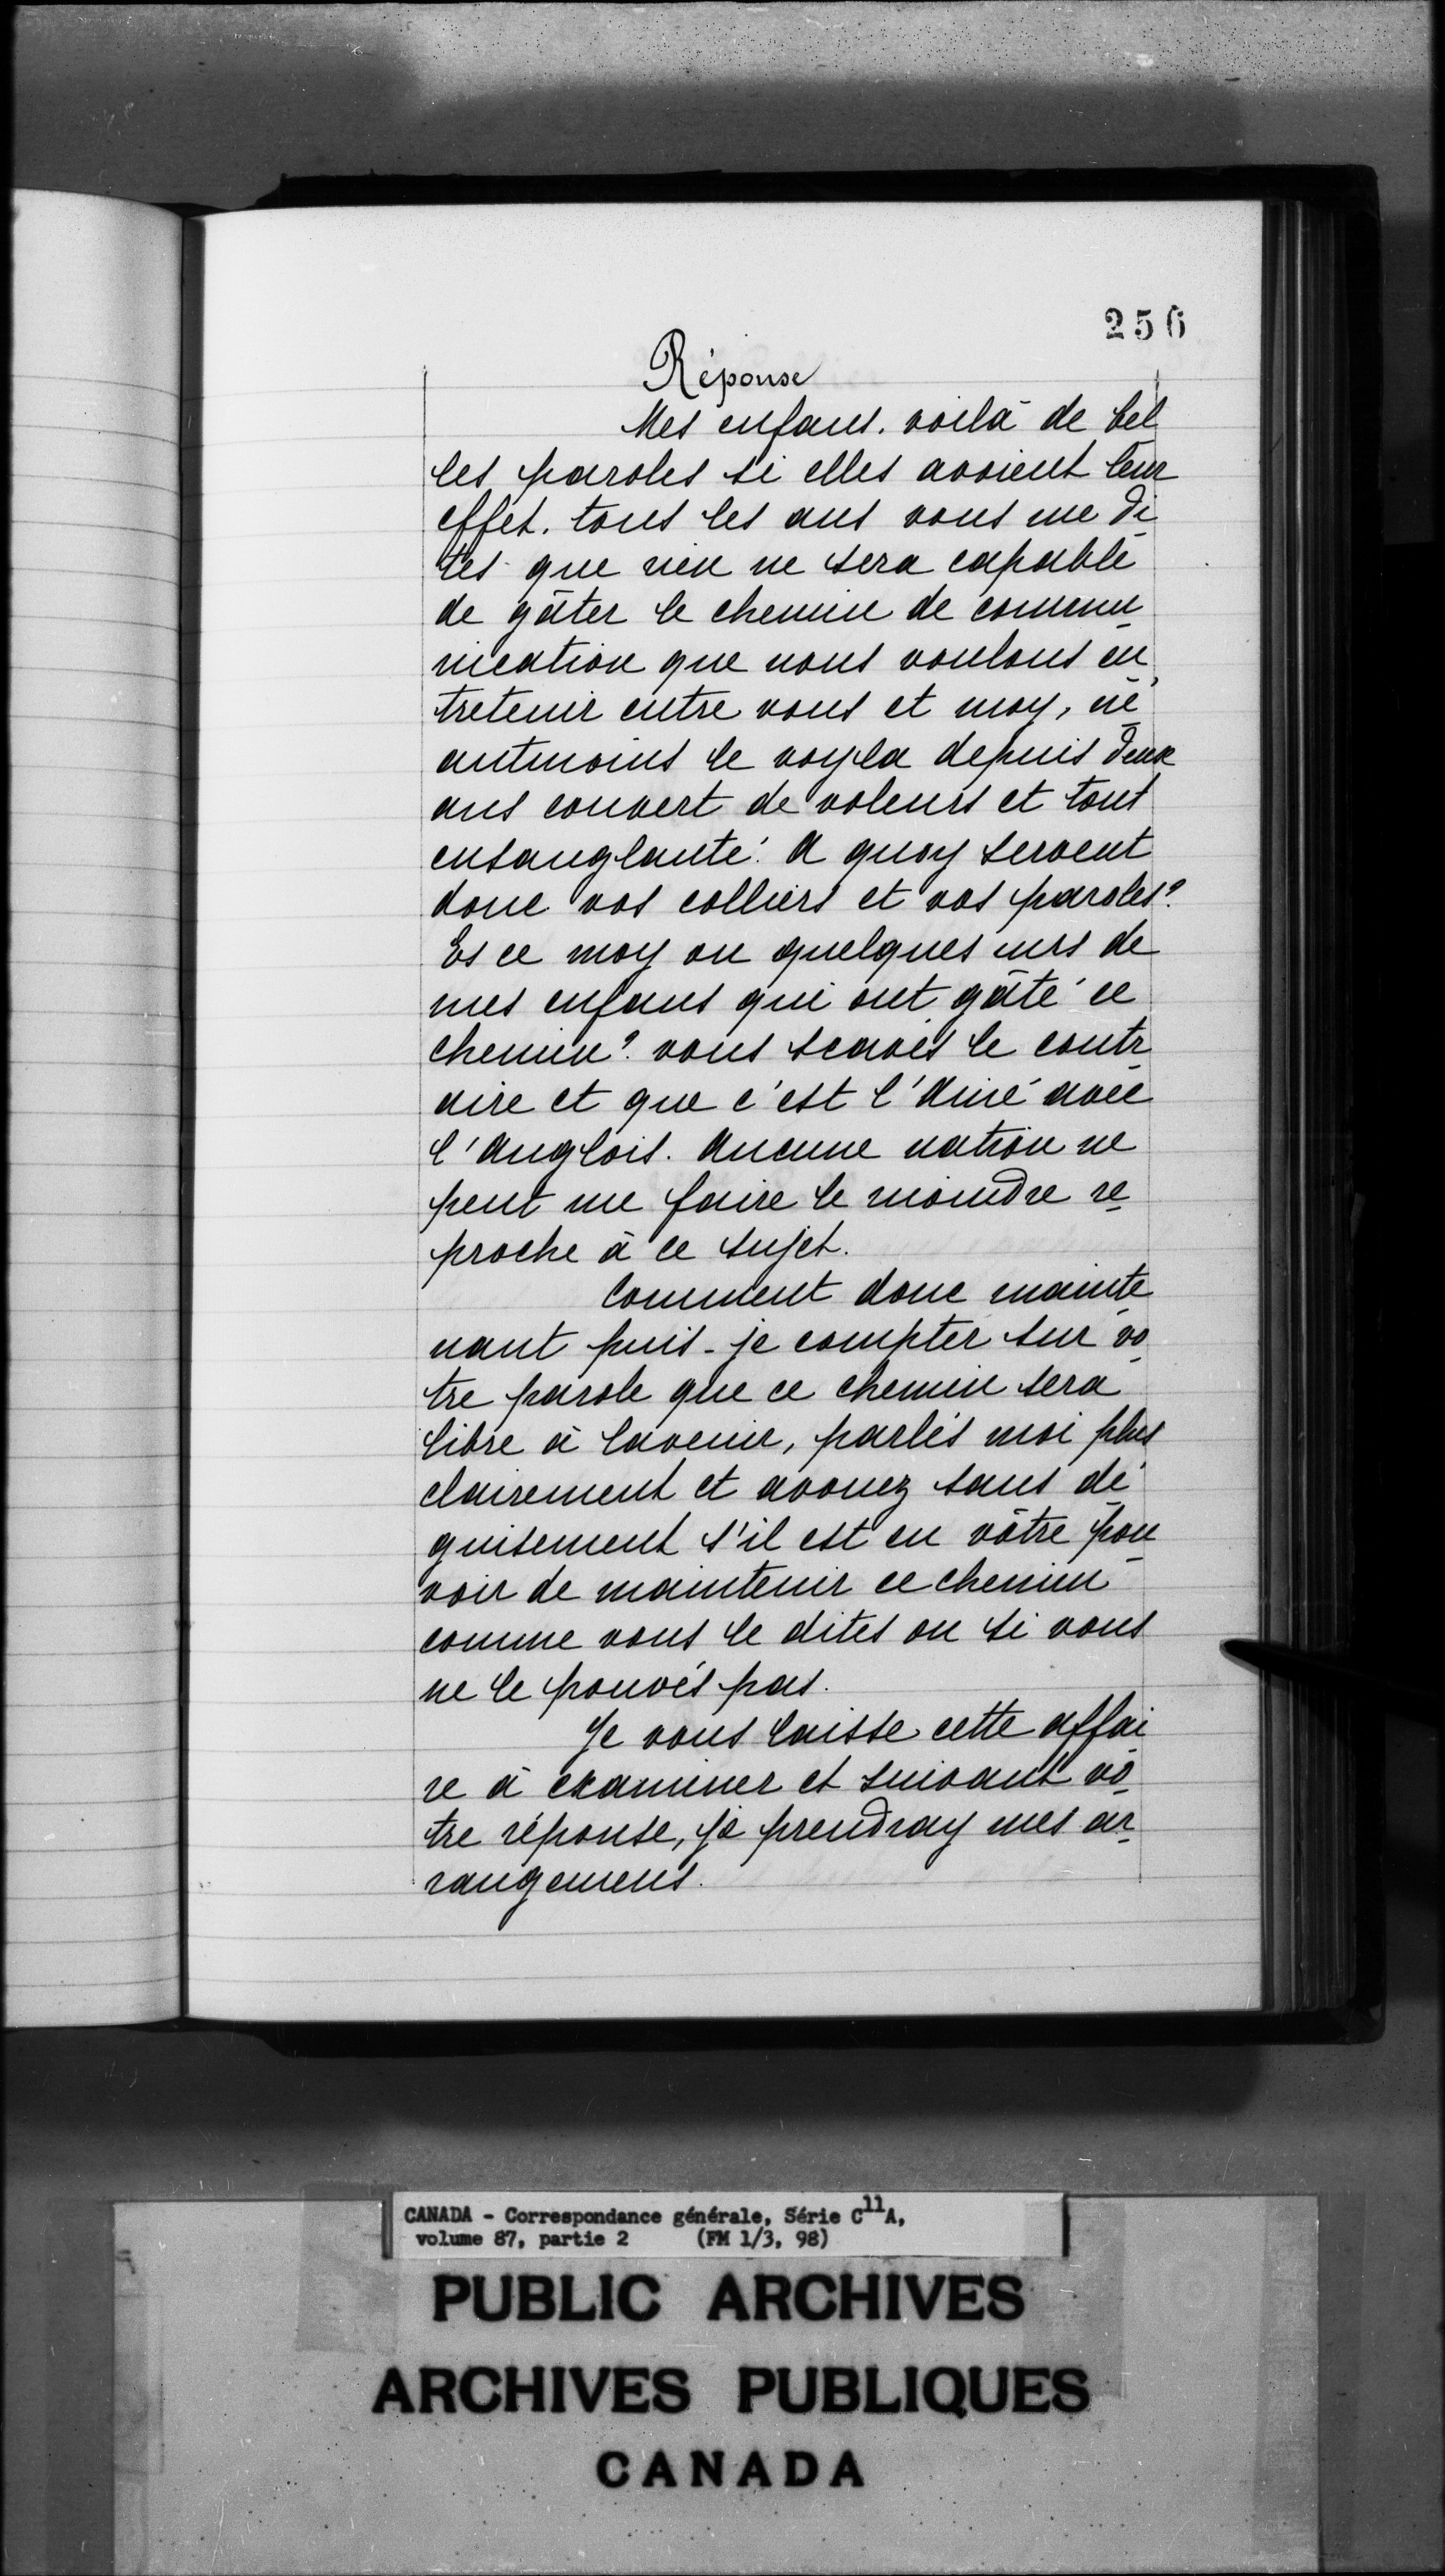 256
Réponse
Mes enfans. voilà de bel
les paroles si elles avoient leur
effet. tous les ans vous me di
tes que rien ne sera capable
de gâter le chemin de commu
nication que nous voulons en
tretenir entre vous et moy, né
antmoins le voyla depuis deux
ans couvert de voleurs et tout
ensanglanté. A quoy servent
donc vos colliers et vos paroles?
Es ce moy ou quelques uns de
mes enfans qui ont gâté ce
chemin? vous scavés le contr
aire et que c'est l'Ainé avec
l'Anglois. Aucune nation ne
peut me faire le moindre re
proche à ce sujet.
Comment donc mainte
nant puis-je compter sur vo
tre parole que ce chemin sera
libre à lavenir, parlés moi plus
clairement et avouez sans dé
guisement s'il est en vôtre pou
voir de maintenir ce chemin
comme vous le dites ou si vous
ne le pouvés pas.
Je vous laisse cette affai
re à examiner et suivant vô
tre réponse, je prendray mes ar
rangemens.
CANADA - Correspondance générale, Série C11A,
volume 87, partie 2 (FM 1/3, 98)
PUBLIC ARCHIVES
ARCHIVES PUBLIQUES
CANADA